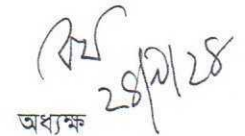 ২৪/৯/২৪
অধ্যক্ষ